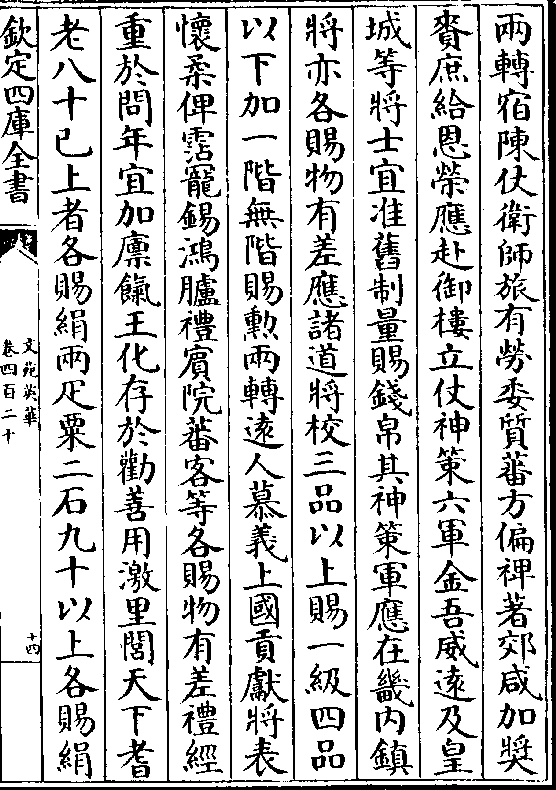 兩轉宿陳仗衛師旅有勞委質蕃方偏裨著郊咸加奬
賚庶給恩榮應赴御樓立仗神策六軍金吾威遠及皇
城等將士宜准舊制量賜錢帛其神策軍應在畿内鎮
將亦各賜物有差應諸道將校三品以上賜一級四品
以下加一階無階賜勲兩轉逺人慕義上國貢獻將表
懷柔俾霑寵錫鴻臚禮賔院蕃客等各賜物有差禮經
重於問年宜加廪餼王化存於勸善用激里閭天下耆
老八十已上者各賜絹兩疋粟二石九十以上各賜絹
欽定四庫全書
文苑英華
卷四百二十
十四